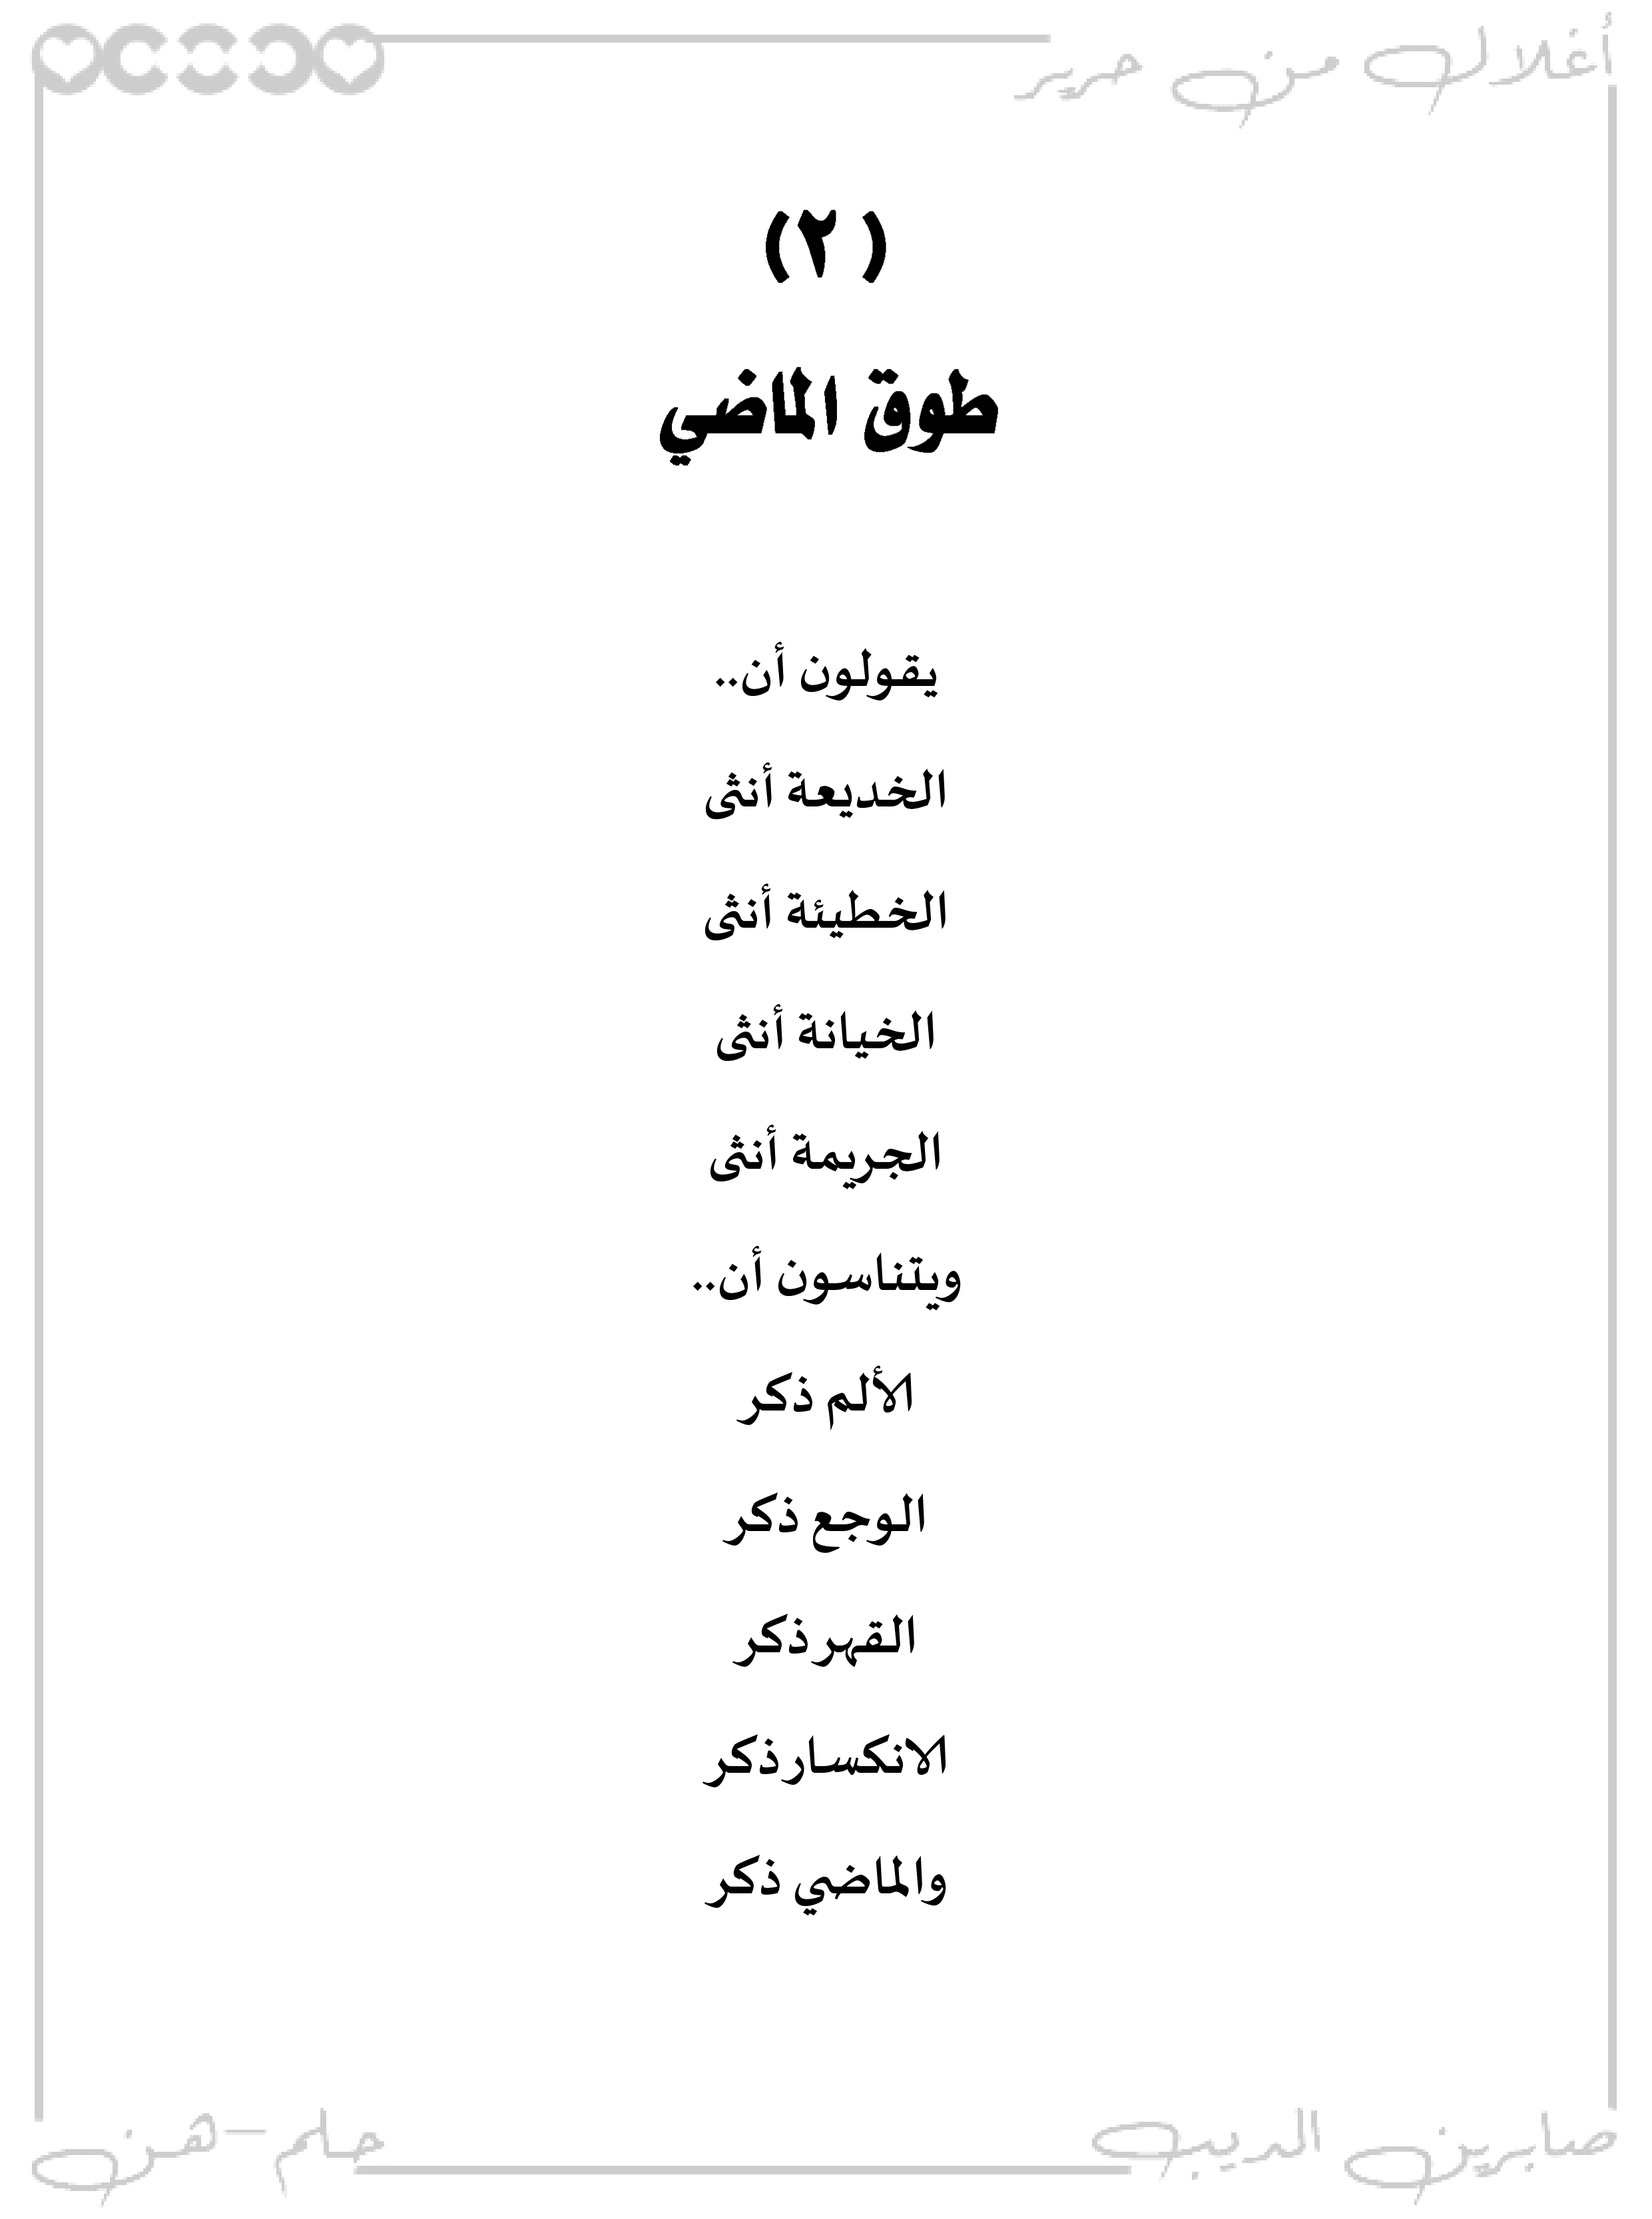 أغلال من حرير
(٢)
طوق الماضي
يقولون أن..
الخديعة أنثى
الخطيئة أنثى
الخيانة أنثى
الجريمة أنثى
ويتناسون أن..
الألم ذكر
الوجع ذكر
القهر ذكر
الانكسار ذكر
والماضي ذكر
صابرين الديب
حلم-هن